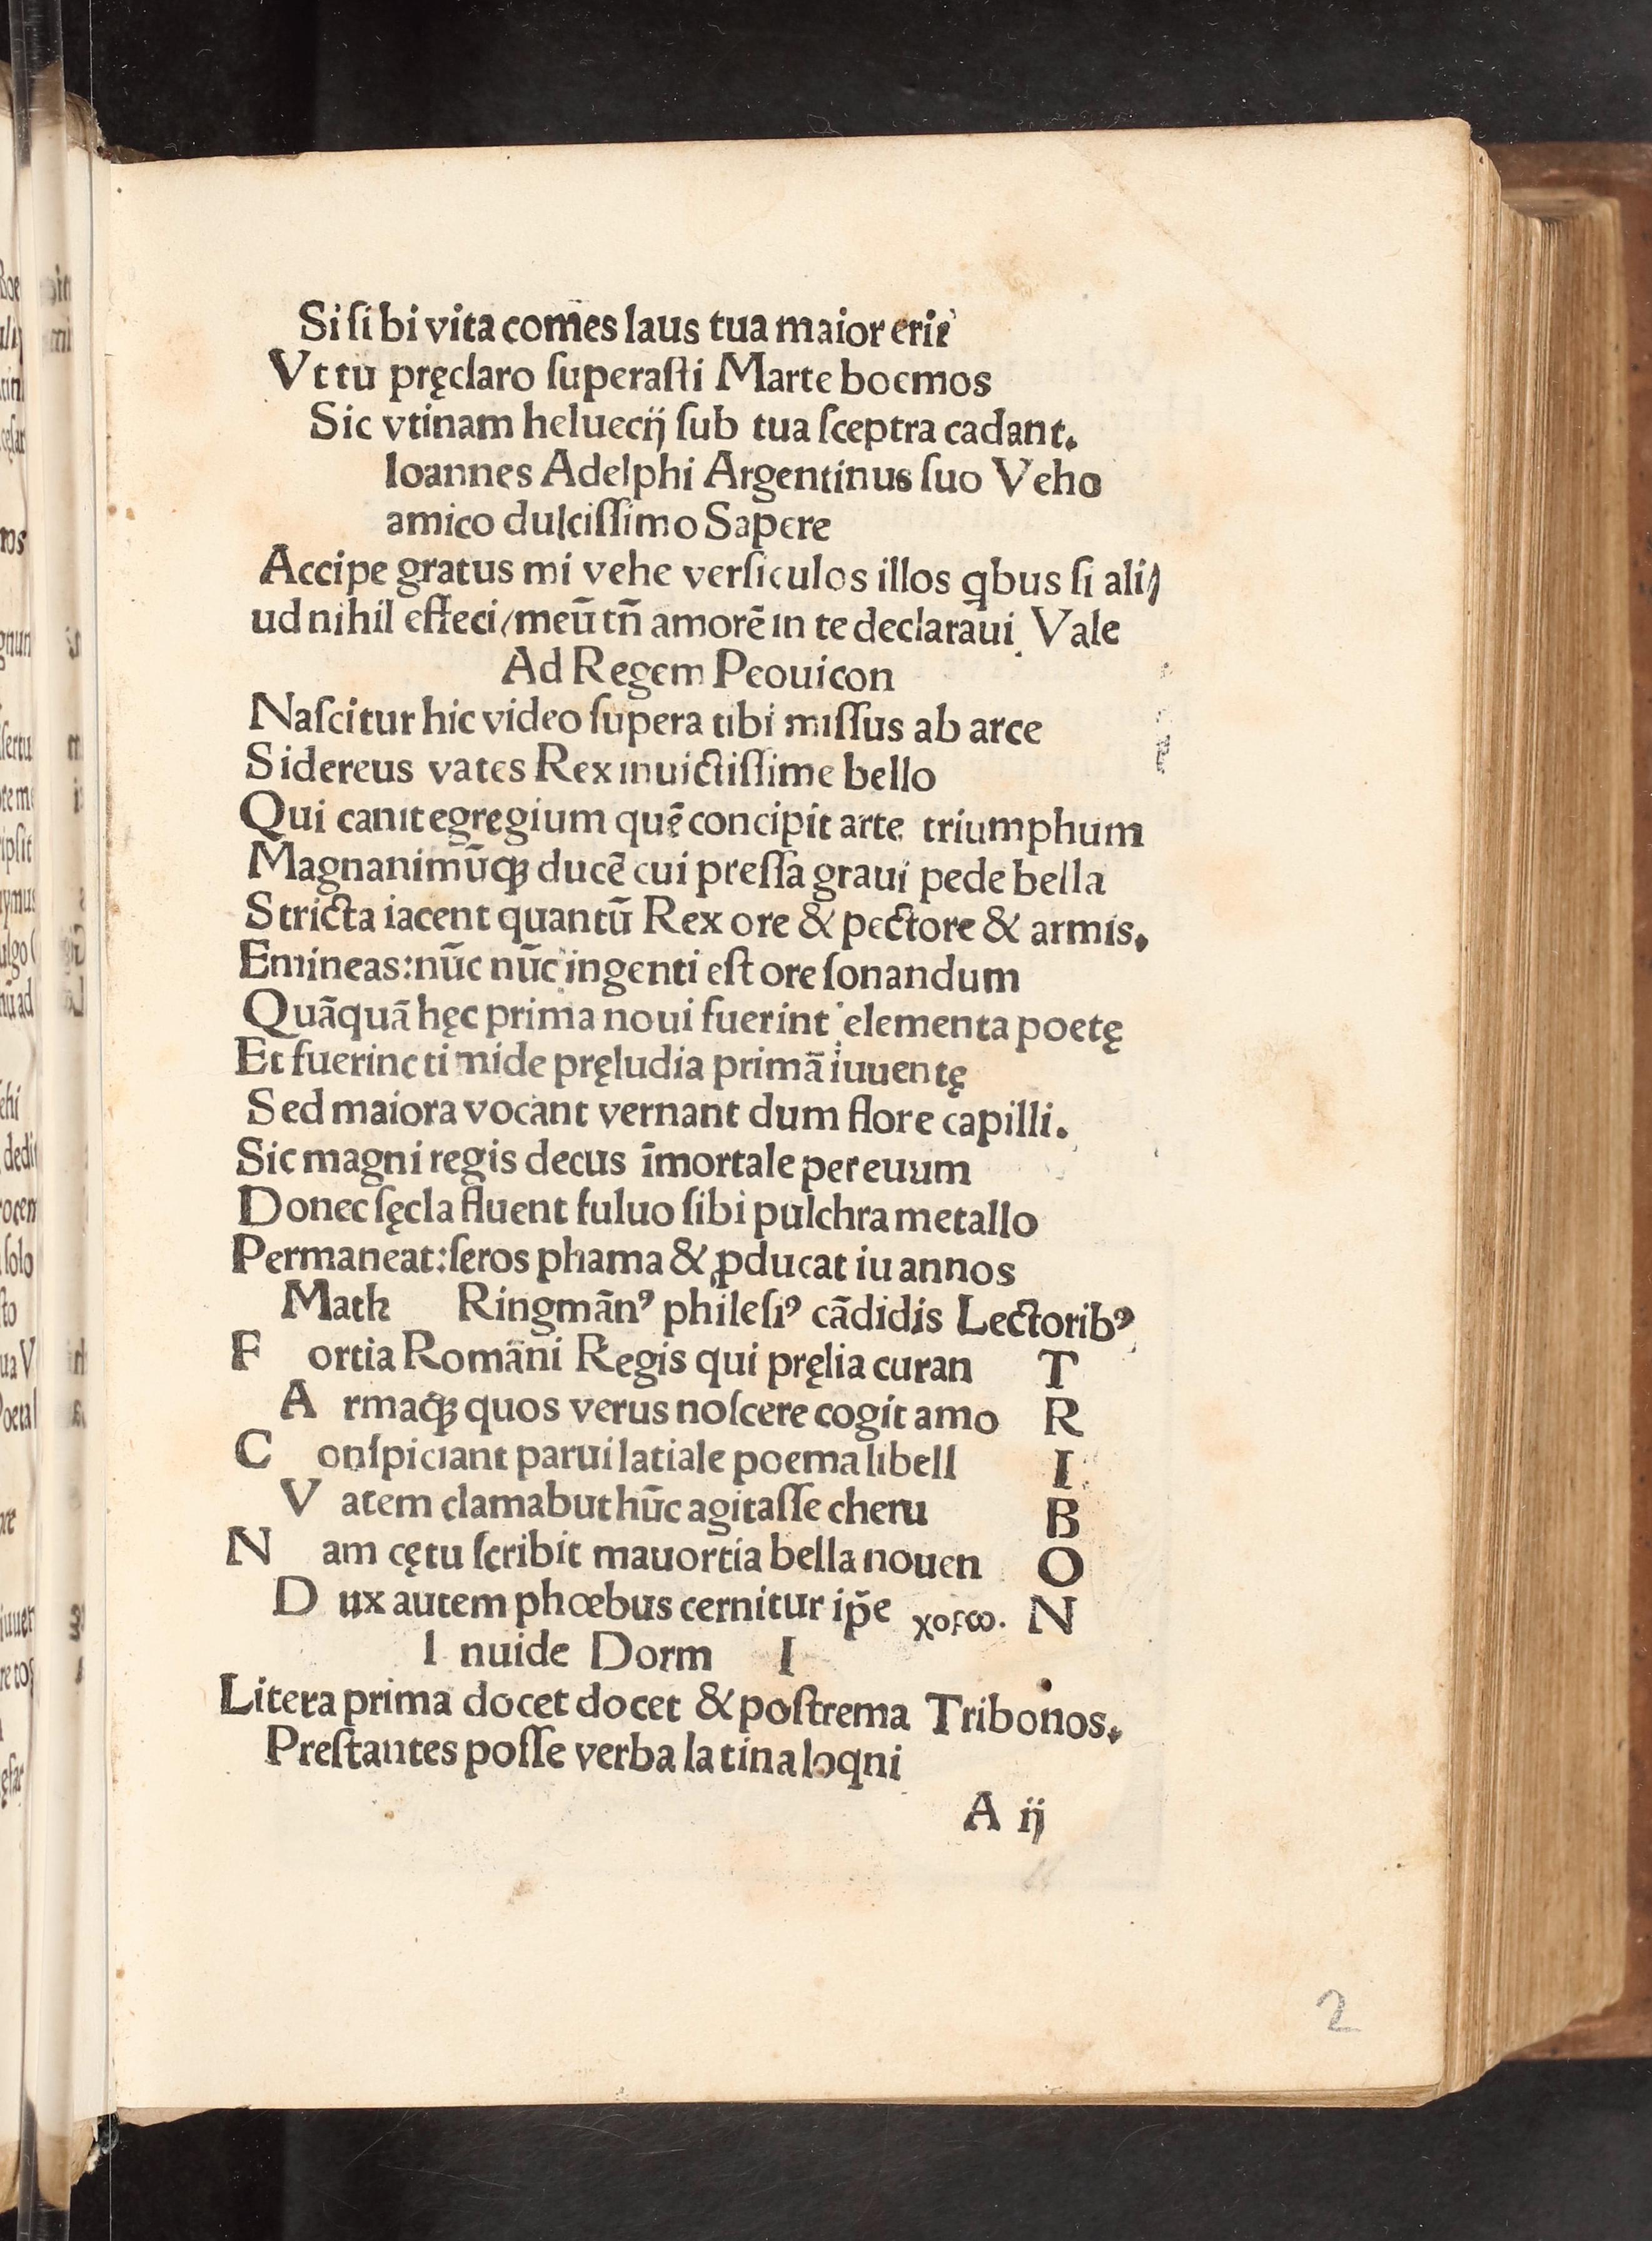 Si ſi bi vita com̄es laus tua maior erit
Vt tu pręclaro ſuperaſti Marte boemos
Sic vtinam heluecij ſub tua ſceptra cadant.
Ioannes Adelphi Argentinus ſuo Veho
amico dulciſſimo Sapere
Accipe gratus mi vehe verſiculos illos qbus ſi ali⸗
ud nihil effeci/meū tn̄ amorē in te declaraui. Vale
Ad Regem Peouicon
Naſcitur hic video ſupera tibi miſſus ab arce
Sidereus vates Rex inuictiſſime bello
Qui canit egregium quē concipit arte triumphum
Magnanimūqꝫ ducē cui preſſa graui pede bella
Stricta iacent quantū Rex ore & pectore & armis.
Emineas:nūc nūc ingenti eſt ore ſonandum
Quāquā hęc prima noui fuerint elementa poetę
Et fuerinc timide pręludia primā iuuentę
Sed maiora vocant vernant dum flore capilli.
Sic magni regis decus īmortale per euum
Donec ſęcla fluent fuluo ſibi pulchra metallo
Permaneat:ſeros phama & ꝓducat iu annos
Math Ringmānꝰ phileſiꝰ cādidis Lectoribꝰ
F ortia Romāni Regis qui pręlia curan T
A rmaqꝫ quos verus noſcere cogit amo R
C onſpiciant parui latiale poema libell I
V atem clamabut hūc agitaſſe cheru B
N am cętu ſcribit mauortia bella nouen O
D ux autem phœbus cernitur ip̄e χοςω. N
I nuide Dorm I
Litera prima docet docet & poſtrema Tribonos.
Preſtantes poſſe verba latina loqni
A ij
2